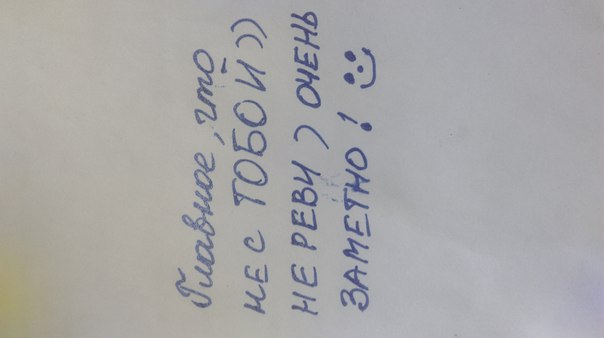 Главное, что
НЕ С ТОБОЙ))
НЕ РЕВИ) ОЧЕНЬ
ЗАМЕТНО!